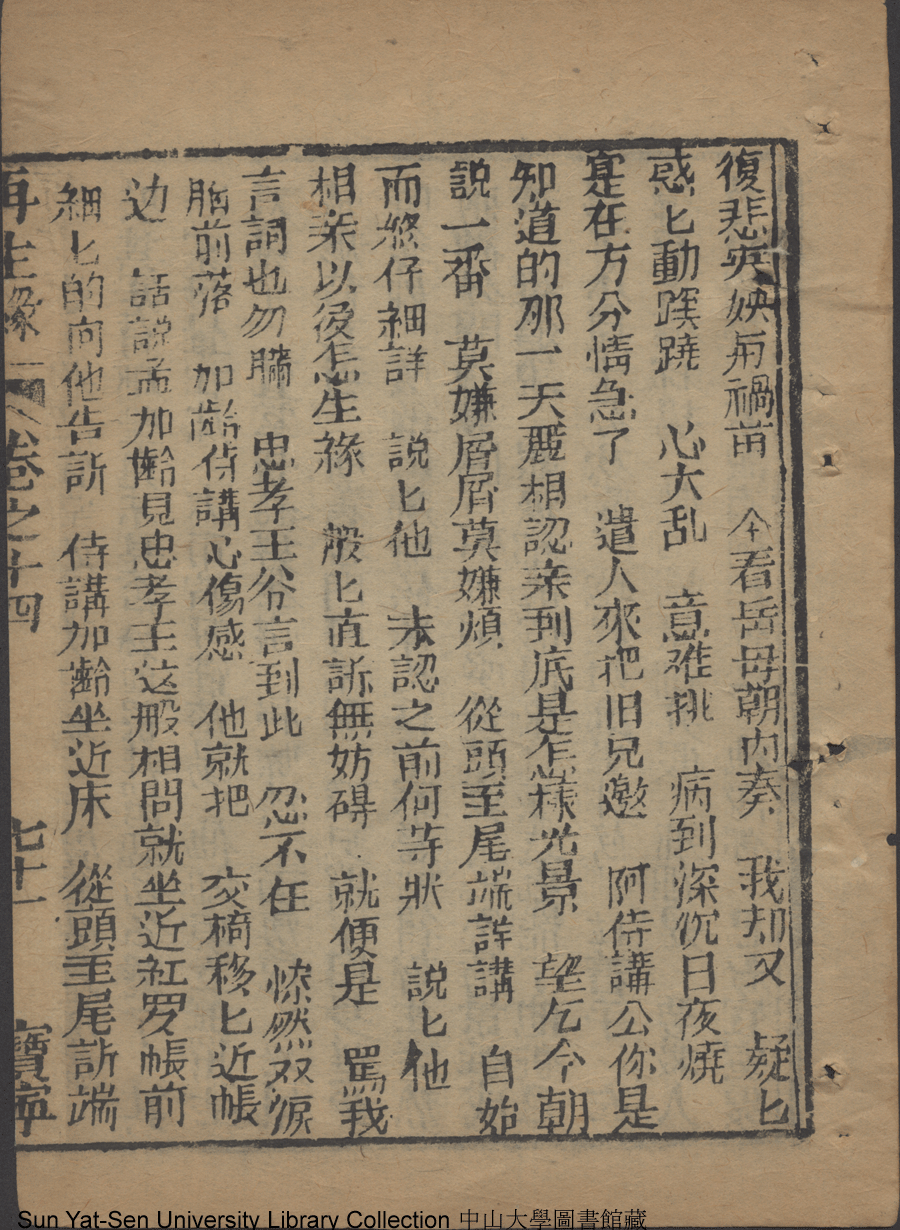 復悲哀姎有禍苗　今看岳母朝内奏　我却又　疑匕
惑匕動蹊蹺　心大乱　意难挑　病到深沉日夜燒
寔在方分情急了　遣人來把旧兄邀　阿侍講公你是
知道的那一天麗相認亲到底是怎様光景　望乞今朝
説一番　莫嫌屑屑莫嫌煩　從頭至尾端詳講　自始
而終仔細詳　説匕他　未認之前何等狀　説匕他
相亲以後怎生緣　般匕直訴無妨碍　就便是　罵我
言詞也勿瞞　忠孝王爷言到此　忍不住　慘然双淚
胸前落　加齡侍講心傷感　他就把　交椅移匕近帳
边　話説孟加齡見忠孝王这般相問就坐近紅罗帳前
細匕的向他告訴　侍講加齡坐近床　從頭至尾訴端
再生緣　卷之十四　七十一　寳寧
Sun Yat-Sen University Library Collection 中山大學圖書館藏